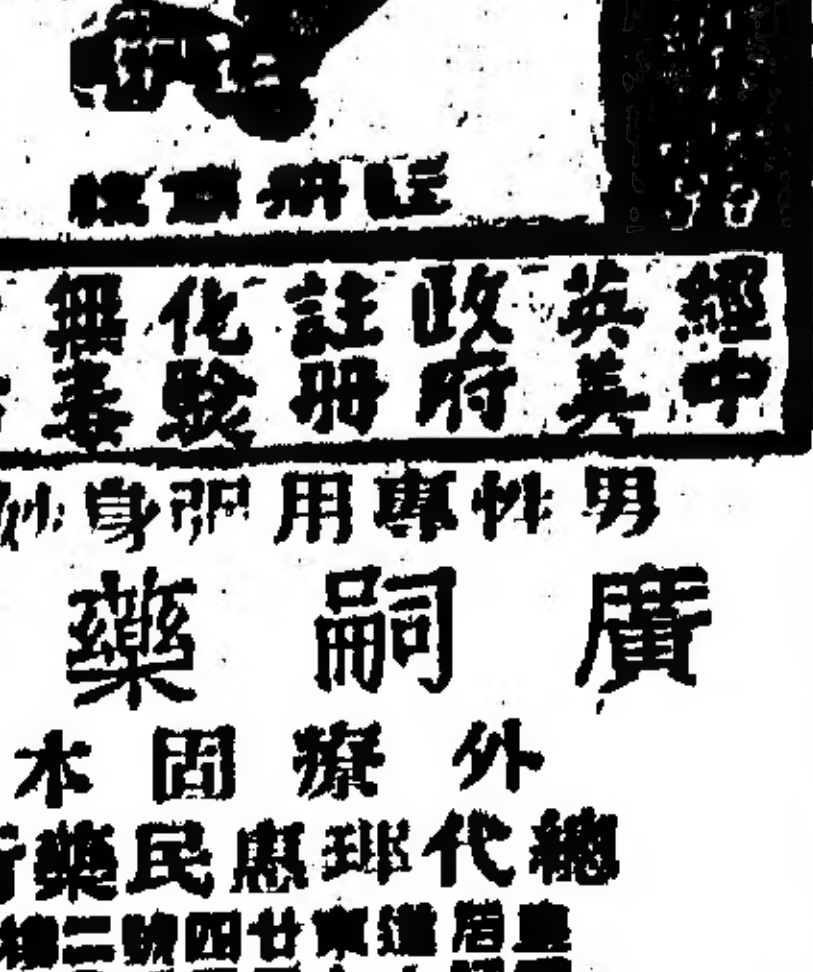 註册商標
經中英美政府註册化驗無毒
男性專用身妙
廣嗣藥
外療固本
總代理惠民藥行
皇后道東廿四號二樓